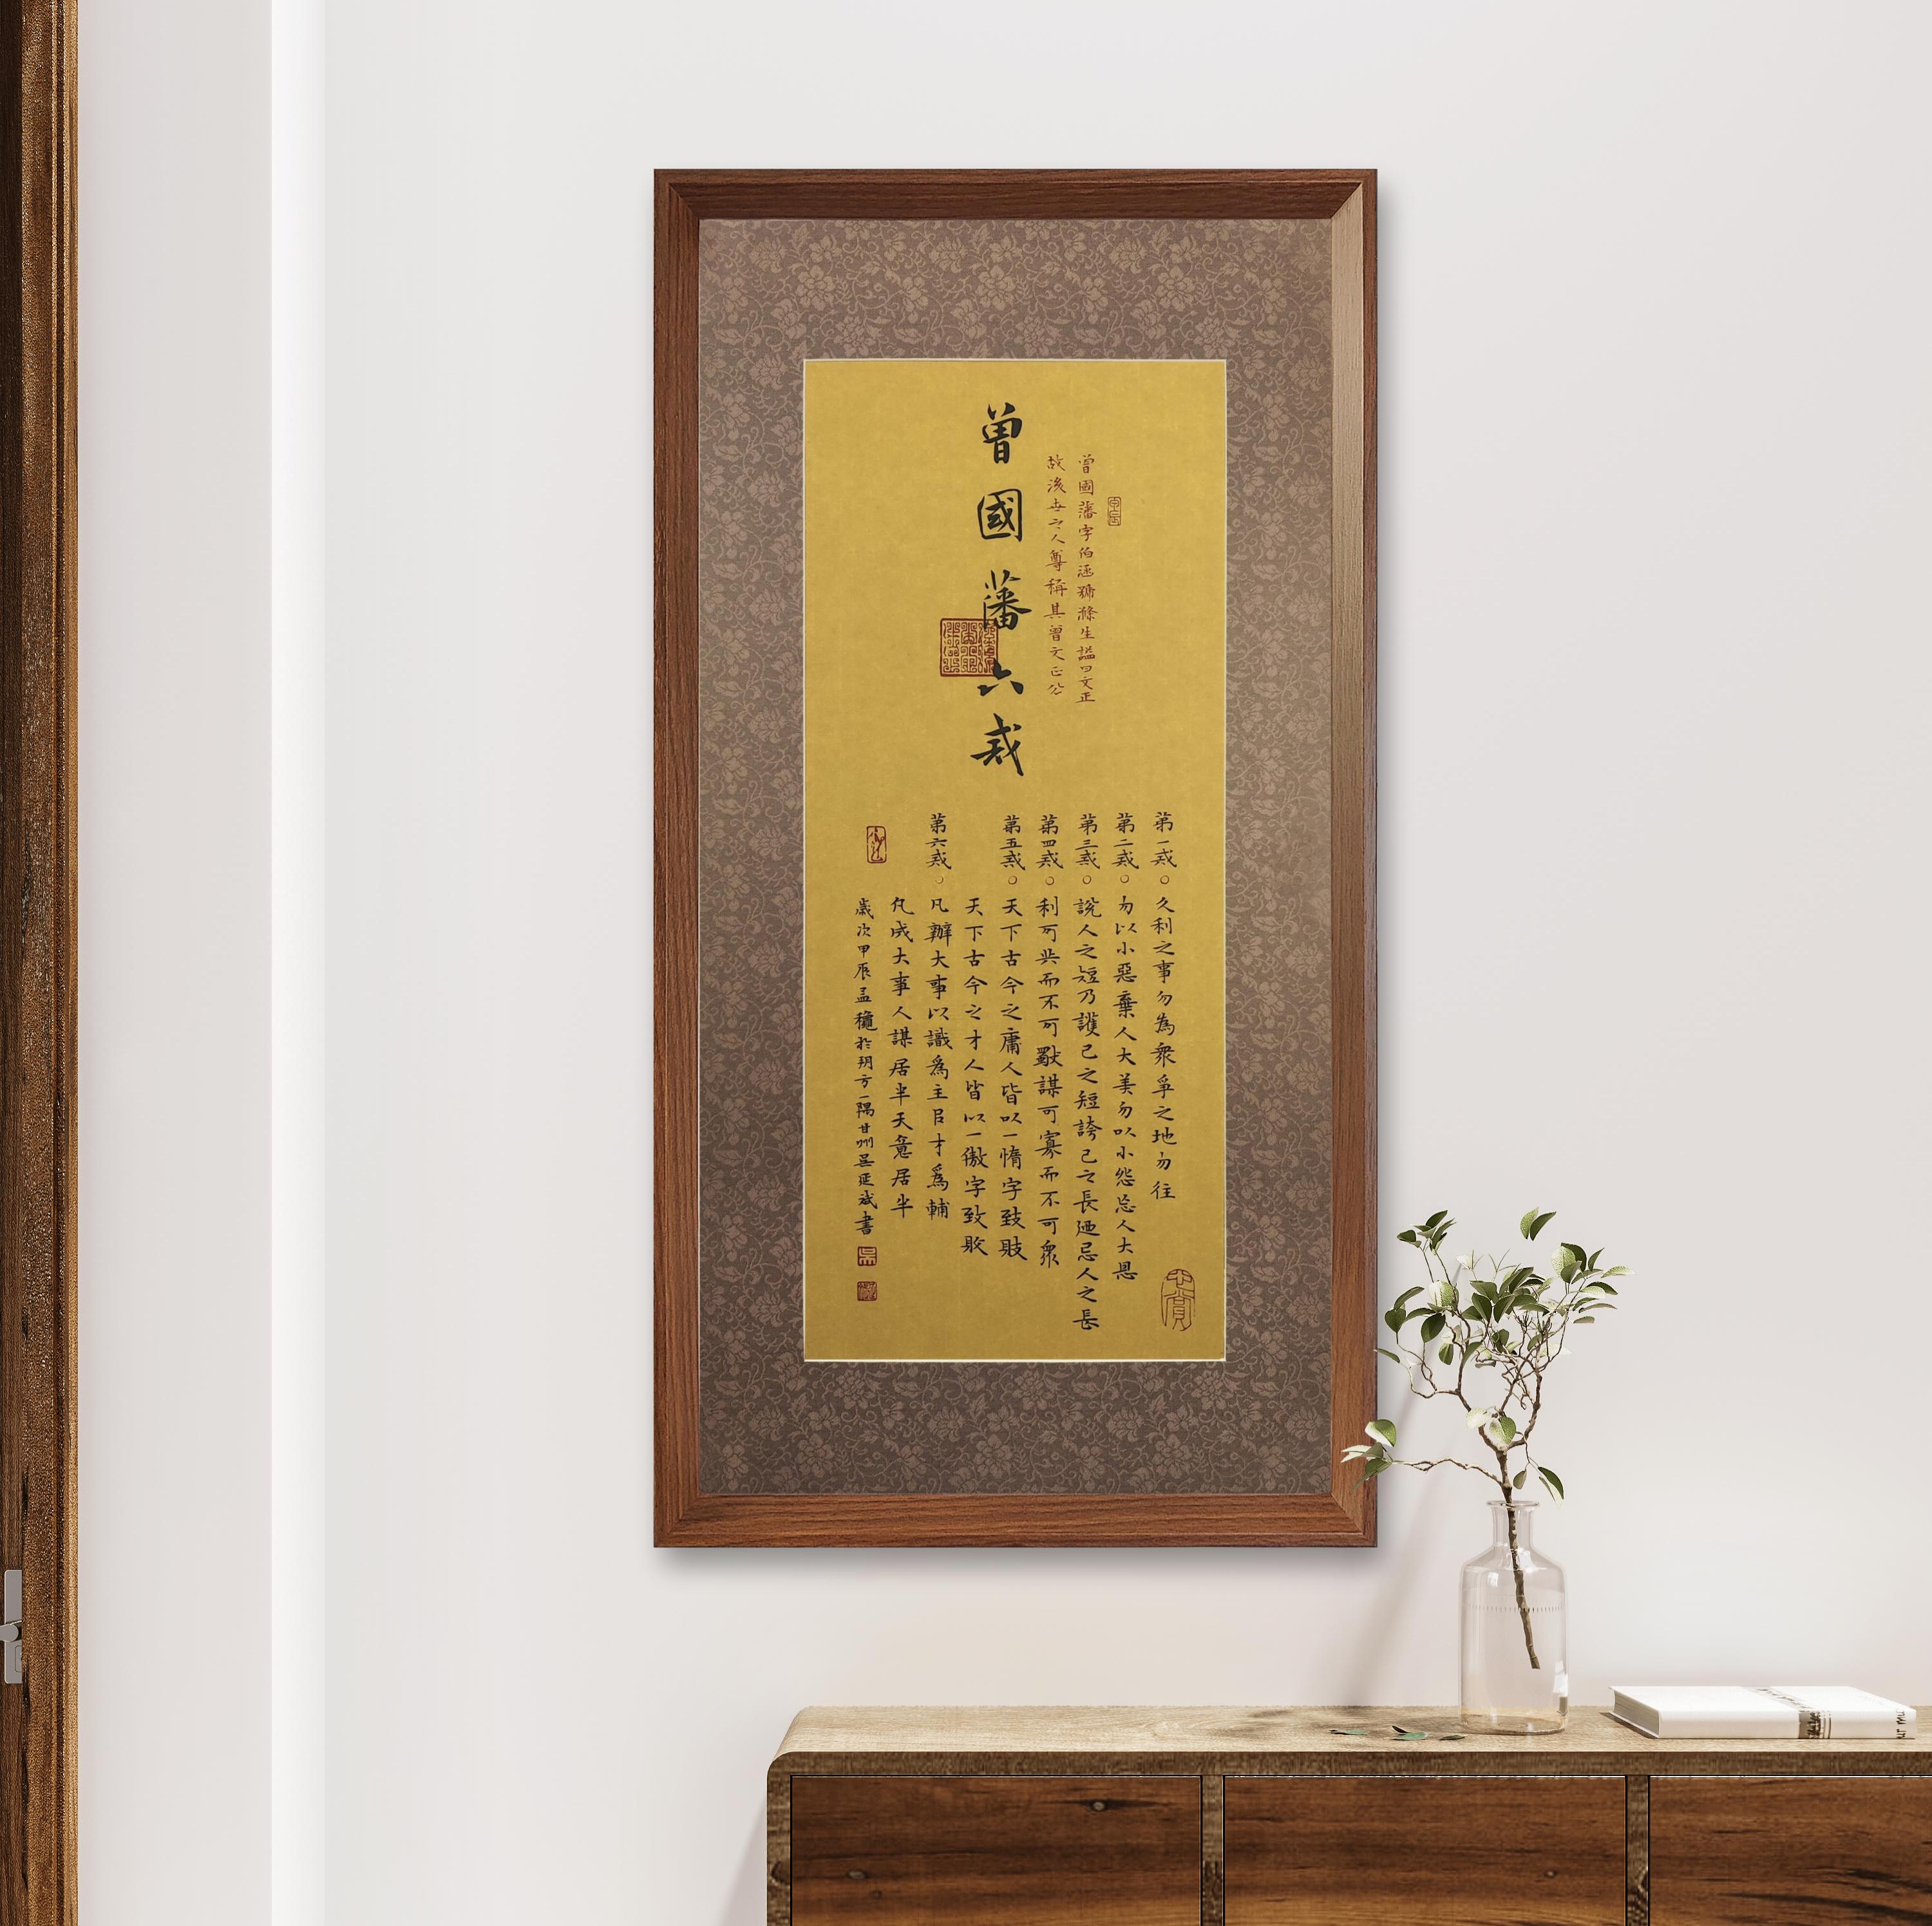 曾國藩六戒
曾國藩字伯涵號滌生謚曰文正
故後世之人尊稱其曾文正公
第一戒。久利之事勿為衆爭之地勿往
第二戒。勿以小惡棄人大美勿以小怨忘人大恩
第三戒。說人之短乃護己之短誇己之長廼忌人之長
第四戒。利可共而不可獸謀可寡而不可衆
第五戒。天下古今之庸人皆以一惰字致敗
天下古今之才人皆以一傲字致敗
第六戒。凡辦大事以識爲主㠯才爲輔
凡成大事人謀居半天意居半
歲次甲辰孟穐於玥方一隅甘州吴延斌書